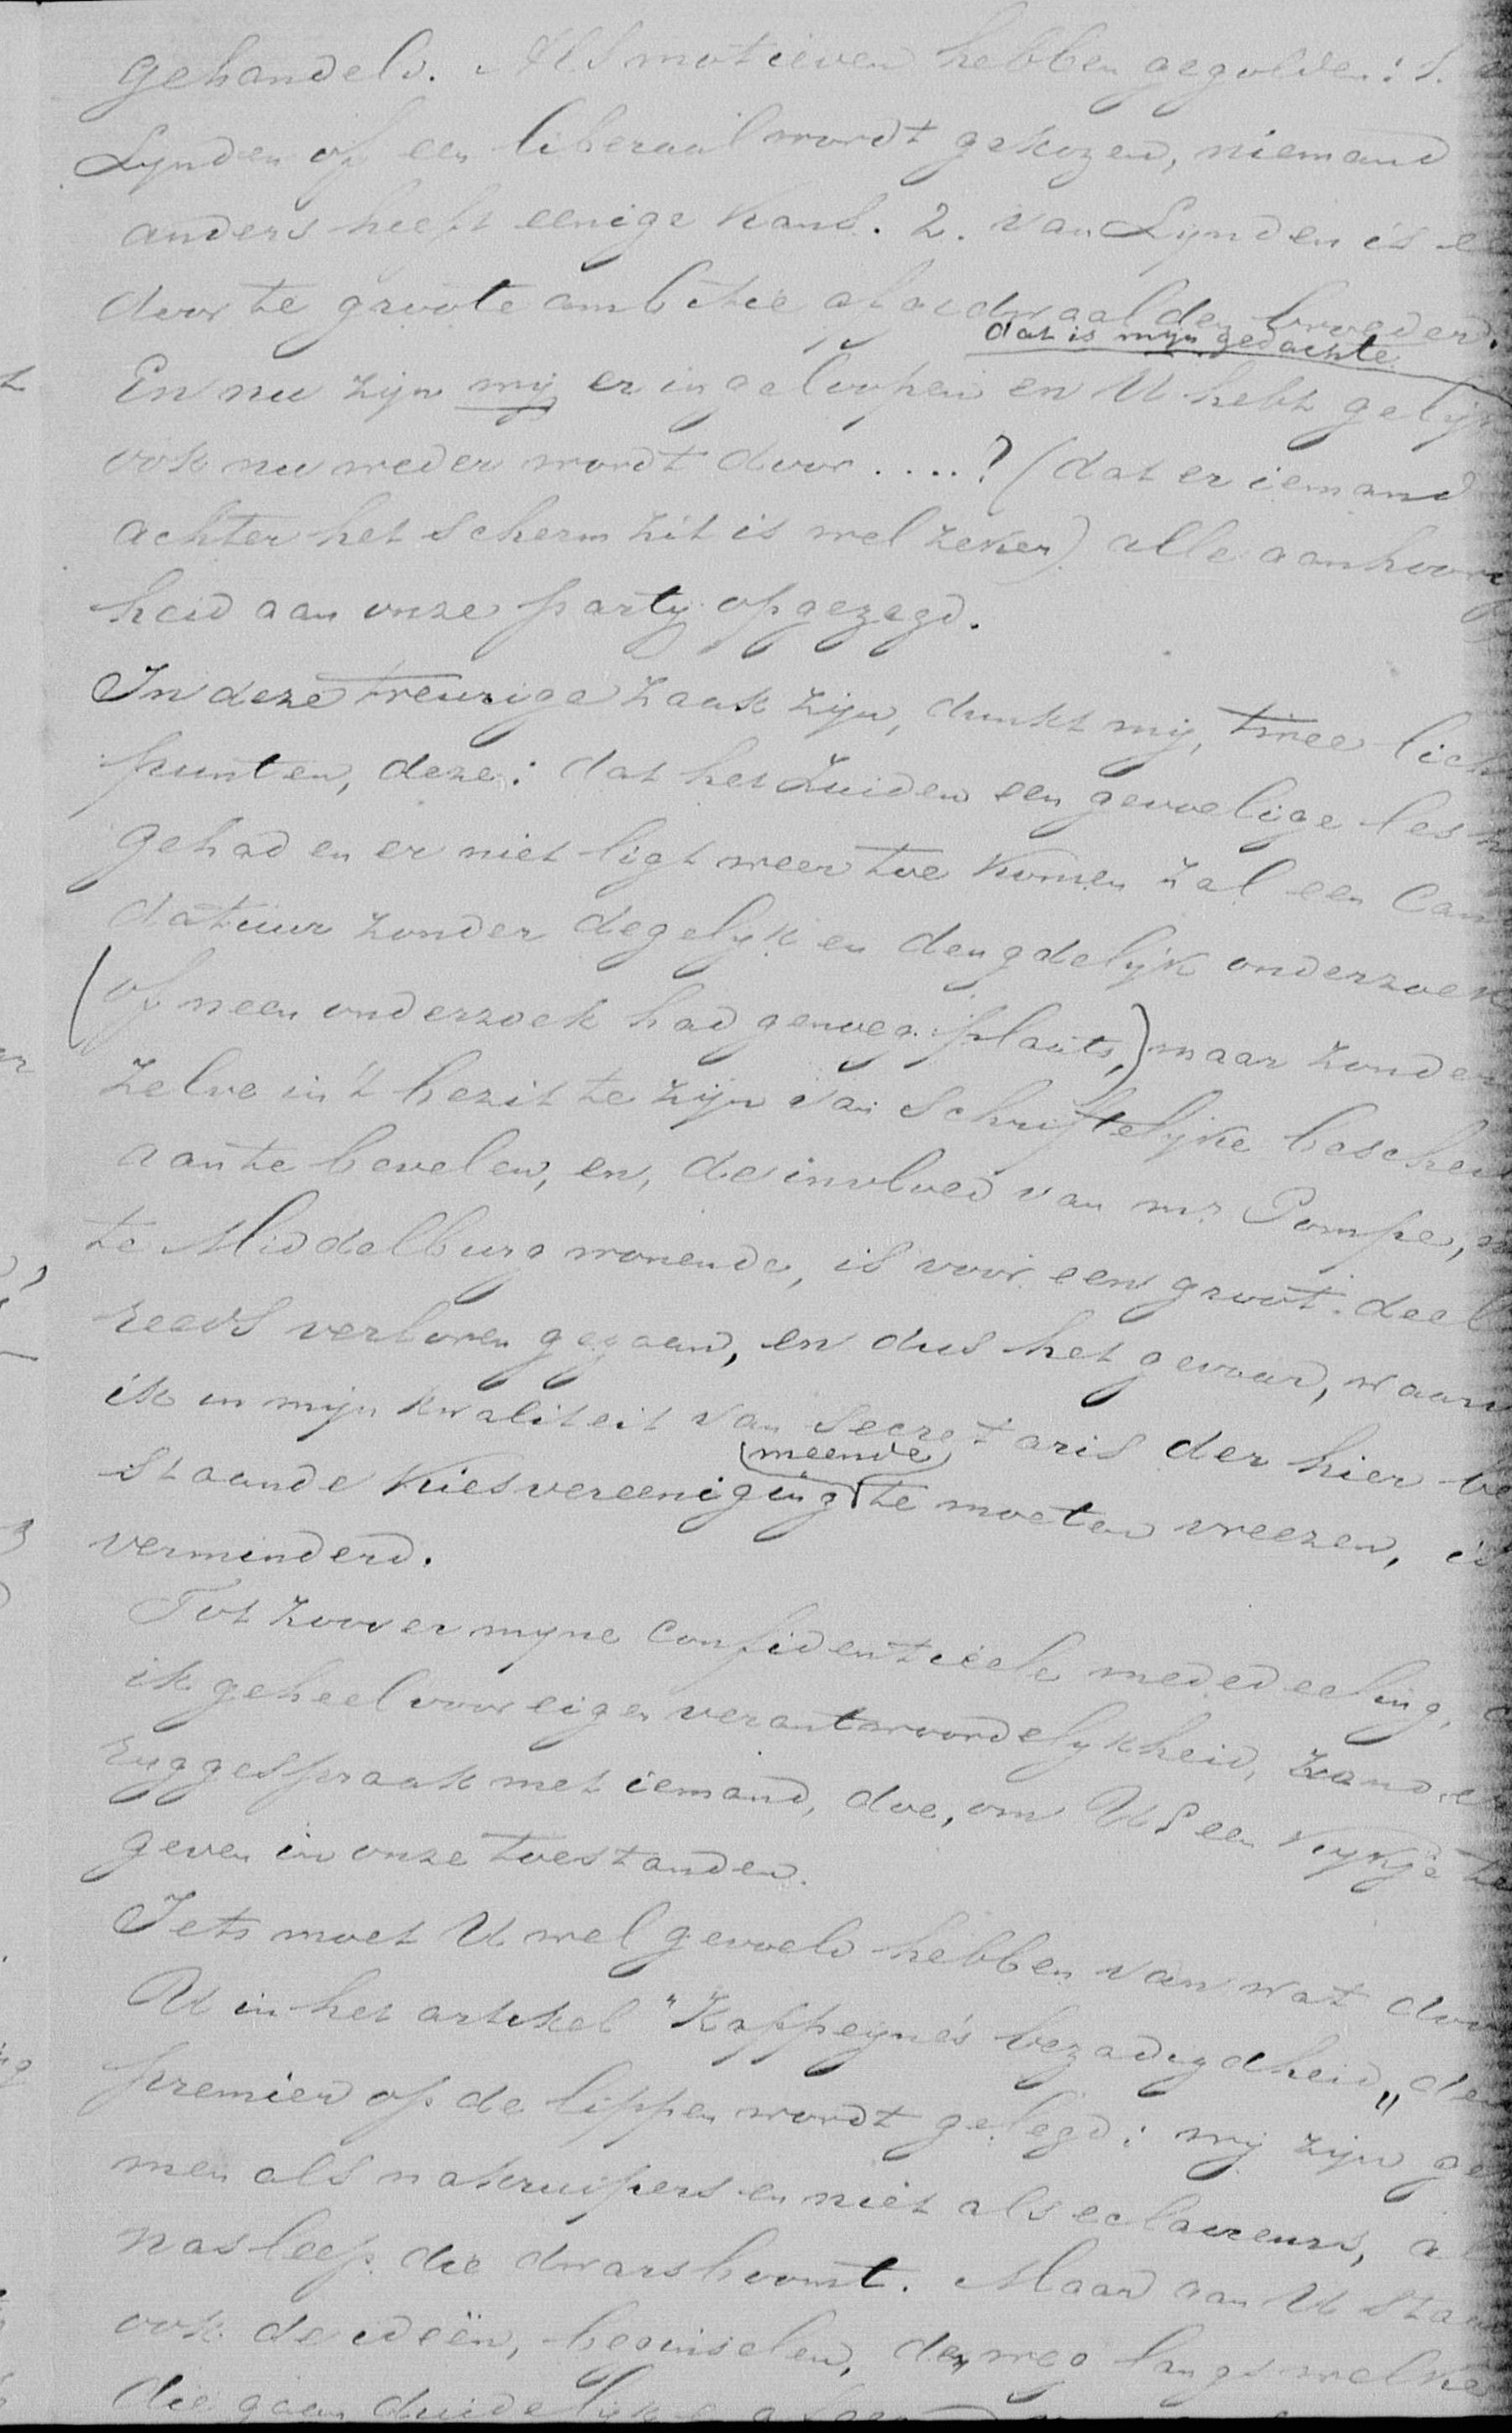 gehandeld. Als motieven hebben gegolden: 1.
Lynden of een liberaal wordt gekozen, niemand
anders heeft eenige kans. 2. Van Lynden is
door te groote ambitie afgedwaalden broeder.
dat is mijn gedachte
En nu zijn wij er ingeloopen en U hebt gelijk
ook nu weder wordt door ....? (dat er iemand
achter het scherm zit is wel zeker) alle aanhoorig
heid aan onze partij opgezegd.
In deze treurige zaak zijn, dunkt mij, twee licht
punten, deze: dat het Zuiden een gevoelige les
gehad en er niet ligt weer toe komen zal een Can
datuur zonder degelijk en deugdelijk onderzoek
(of neen onderzoek had genoeg plaats,) maar zonder
zelve in 't bezit te zijn van schriftelijke beschei
aan te bevelen, en, de invloed van mr Pompe,
te Middelburg wonende, is voor een groot deel
reeds verloren gegaan, en dus het gevaar, waar
ik in mijn kwaliteit van Secretaris der hier be
(meende)
staande Kiesvereeniging te moeten vreezen, is
verminderd.
Tot zoover mijne confidentieele mededeeling,
ik geheel voor eigen verantwoordelijkheid, zonder
ruggespraak met iemand, doe, om UE een kijkje te
geven in onze toestanden.
Iets moet U wel gevoeld hebben van wat door
U in het artikel "Kappeyne's bezadigdheid" den
premier op de lippen wordt gelegd: wij zijn ge
men als nakruipers en niet als eclaireurs, al
nasleep die dwarsboomt. Maar aan U staa
ook de ideën, beginselen, den weg langs welke
die gaan duidelijk